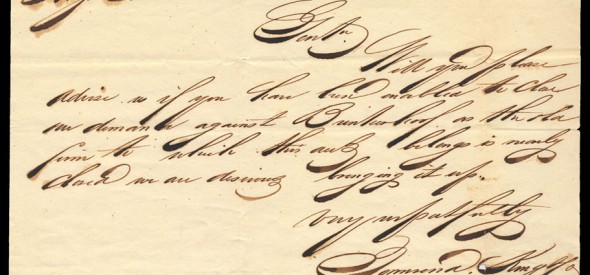 Gentn.
Will you please
advise us if you have been enabled to close
our demands against Brinkerhoff, as the old
firm to which this acct belongs is nearly
closed we are desirous bringing it up.
very respectfully